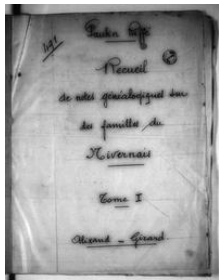 191
Recueil
de notes généalogiques sur
des familles du
Nivernais
Tome I
Girard.